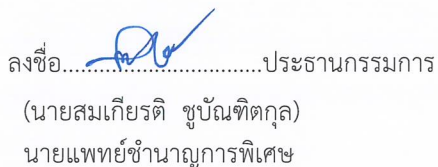 ลงชื่อ.................................ประธานกรรมการ
(นายสมเกียรติ ชูบัณฑิตกุล)
นายแพทย์ชำนาญการพิเศษ